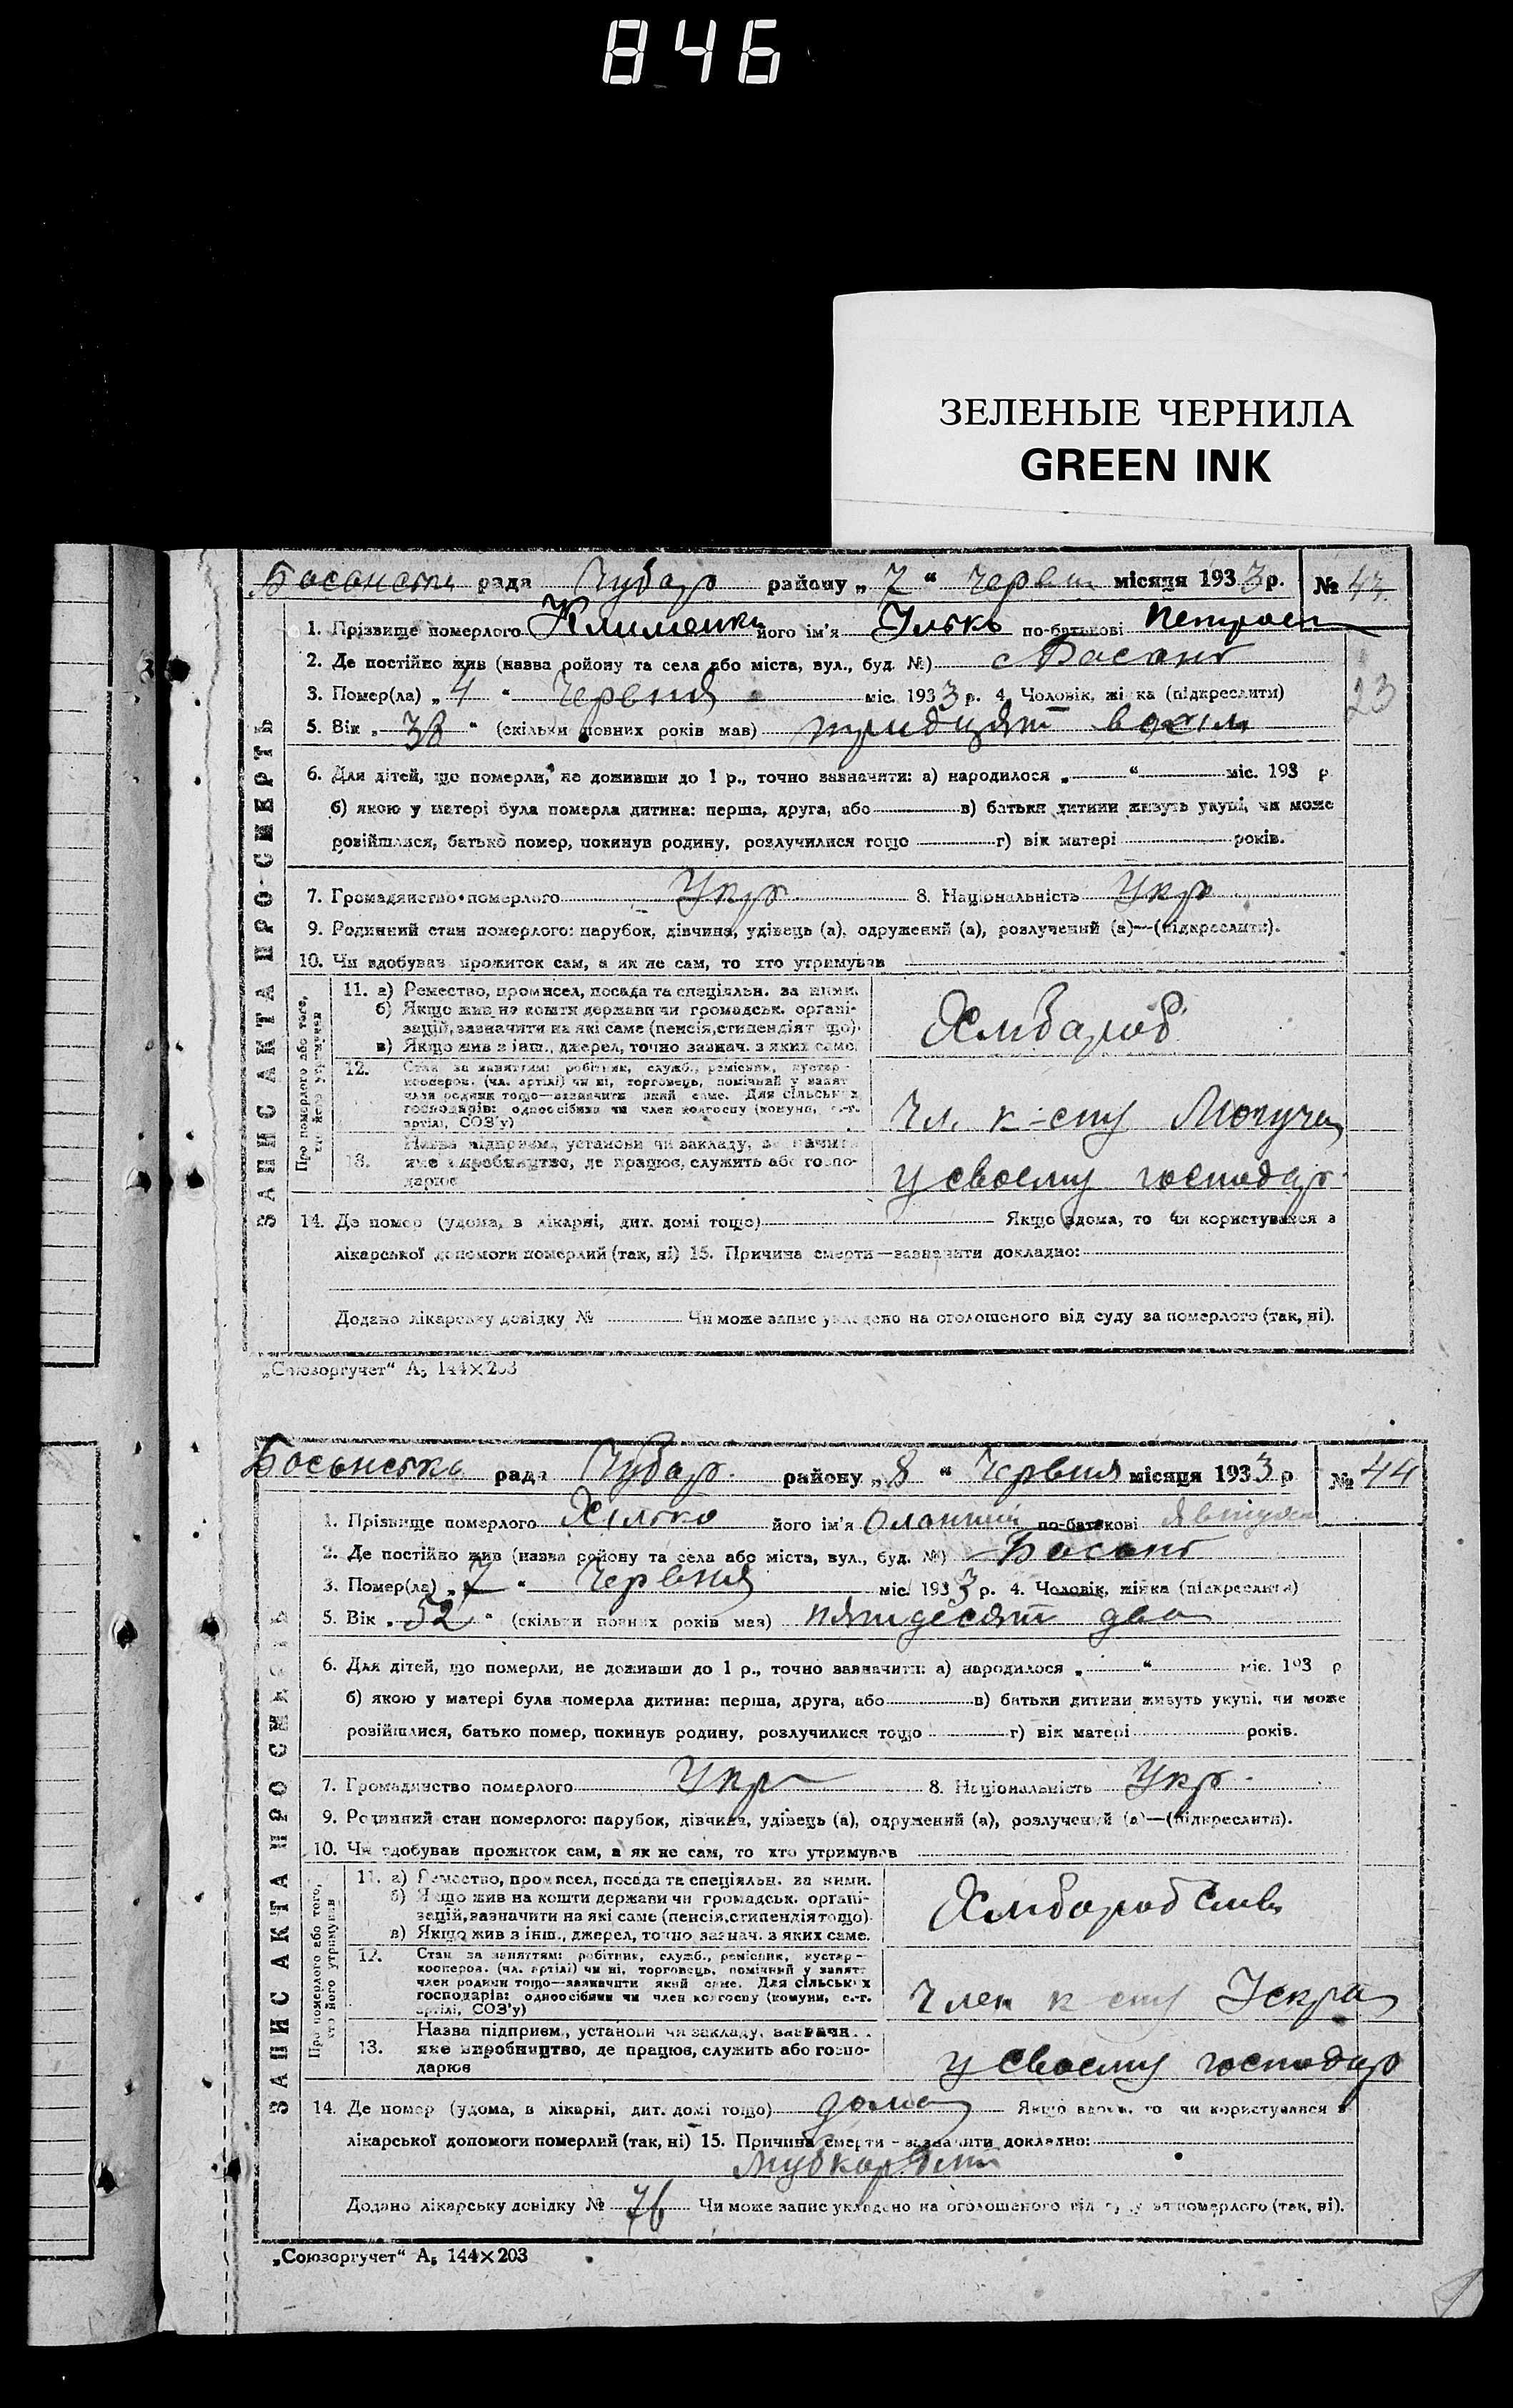 846
ЗЕЛЕНЫЕ ЧЕРНИЛА
GREEN INK
рада Чубар району „7“ Червня місяця 1933 р. № 43
1. Прізвище померлого Клименко його ім'я Ілько по-батькові Петров
2. Де постійно жив (назва ройону та села або міста, вул., буд. №) с Басань
3. Помер(ла) „4“ Червня міс. 1933 р. 4. Чоловік, жінка (підкреслити)
23
5. Вік „38“ (скільки повних років мав) тридцять восім
6. Для дітей, що померли, не доживши до 1 р., точно зазначити: а) народилося „ “ міс. 193 р.
б) якою у матері була померла дитина: перша, друга, або в) батьки дитини живуть укупі, чи може
розійшлися, батько помер, покинув родину, розлучилися тощо г) вік матері років.
7. Громадянство померлого Укр 8. Національність Укр
9. Родинний стан померлого: парубок, дівчина, удівець (а), одружений (а), розлучений (а)—(підкреслити).
10. Чи здобував прожиток сам, а як не сам, то хто утримував
ЗАПИС АКТА ПРО СМЕРТЬ
Про померлого або того, хто його утримував
11. а) Ремество, промисел, посада та спеціяльн. за ними.
б) Якщо жив на кошти держави чи громадськ. органі-
зацій, зазначити на які саме (пенсія, стипендія тощо).
в) Якщо жив з інш., джерел, точно зазнач. з яких саме.
Хлібороб
12. Стан за заняттям: робітник, служб., ремісник, кустар—
кооперов. (чл. артілі) чи ні, торговець, помічний у занят.
член родини тощо—зазначити який саме. Для сільських
господарів: одноосібник чи член колгоспу (комуни, с.-г.
артілі, СОЗ'у)
Чл. к-спу
13. Назва підприєм., установи чи закладу, зазначити
яке виробництво, де працює, служить або госпо-
дарює
у своєму господар
14. Де помер (удома, в лікарні, дит. домі тощо) Якщо вдома, то чи користувався з
лікарської допомоги померлий (так, ні) 15. Причина смерти—зазначити докладно:
Додано лікарську довідку № Чи може запис укладено на оголошеного від суду за померлого (так, ні).
„Союзоргучет“ А5 144×203
рада Чубар. району „8“ Червня місяця 1933 р № 44
1. Прізвище померлого Хілько його ім'я по-батькові
2. Де постійно жив (назва ройону та села або міста, вул., буд. №) Басань
3. Помер(ла) „7“ Червня міс. 1933 р. 4. Чоловік, жінка (підкреслити)
5. Вік „52“ (скільки повних років мав) пятдесят два
6. Для дітей, що померли, не доживши до 1 р., точно зазначити: а) народилося „ “ міс. 193 р
б) якою у матері була померла дитина: перша, друга, або в) батьки дитини живуть укупі, чи може
розійшлися, батько помер, покинув родину, розлучилися тощо г) вік матері років.
7. Громадянство померлого Укр 8. Національність Укр.
9. Родинний стан померлого: парубок, дівчина, удівець (а), одружений (а), розлучений (а)—(підкреслити).
10. Чи здобував прожиток сам, а як не сам, то хто утримував
ЗАПИС АКТА ПРО СМЕРТЬ
Про померлого або того, хто його утримував
11. а) Ремество, промисел, посада та спеціяльн. за ними.
б) Якщо жив на кошти держави чи громадськ. органі-
зацій, зазначити на які саме (пенсія, стипендія тощо).
в) Якщо жив з інш., джерел, точно зазнач. з яких саме.
12. Стан за заняттям: робітник, служб., ремісник, кустар—
кооперов. (чл. артілі) чи ні, торговець, помічний у занят.
член родини тощо—зазначити який саме. Для сільських
господарів: одноосібник чи член колгоспу (комуни, с.-г.
артілі, СОЗ'у)
Член к спу Іскра
13. Назва підприєм., установи чи закладу, зазначи.
яке виробництво, де працює, служить або госпо-
дарює
у своєму господар
14. Де помер (удома, в лікарні, дит. домі тощо) дома Якщо вдома, то чи користувався з
лікарської допомоги померлий (так, ні) 15. Причина смерти—зазначити докладно:
Додано лікарську довідку № 76 Чи може запис укладено на оголошеного від суду за померлого (так, ні).
„Союзоргучет“ А5 144×203